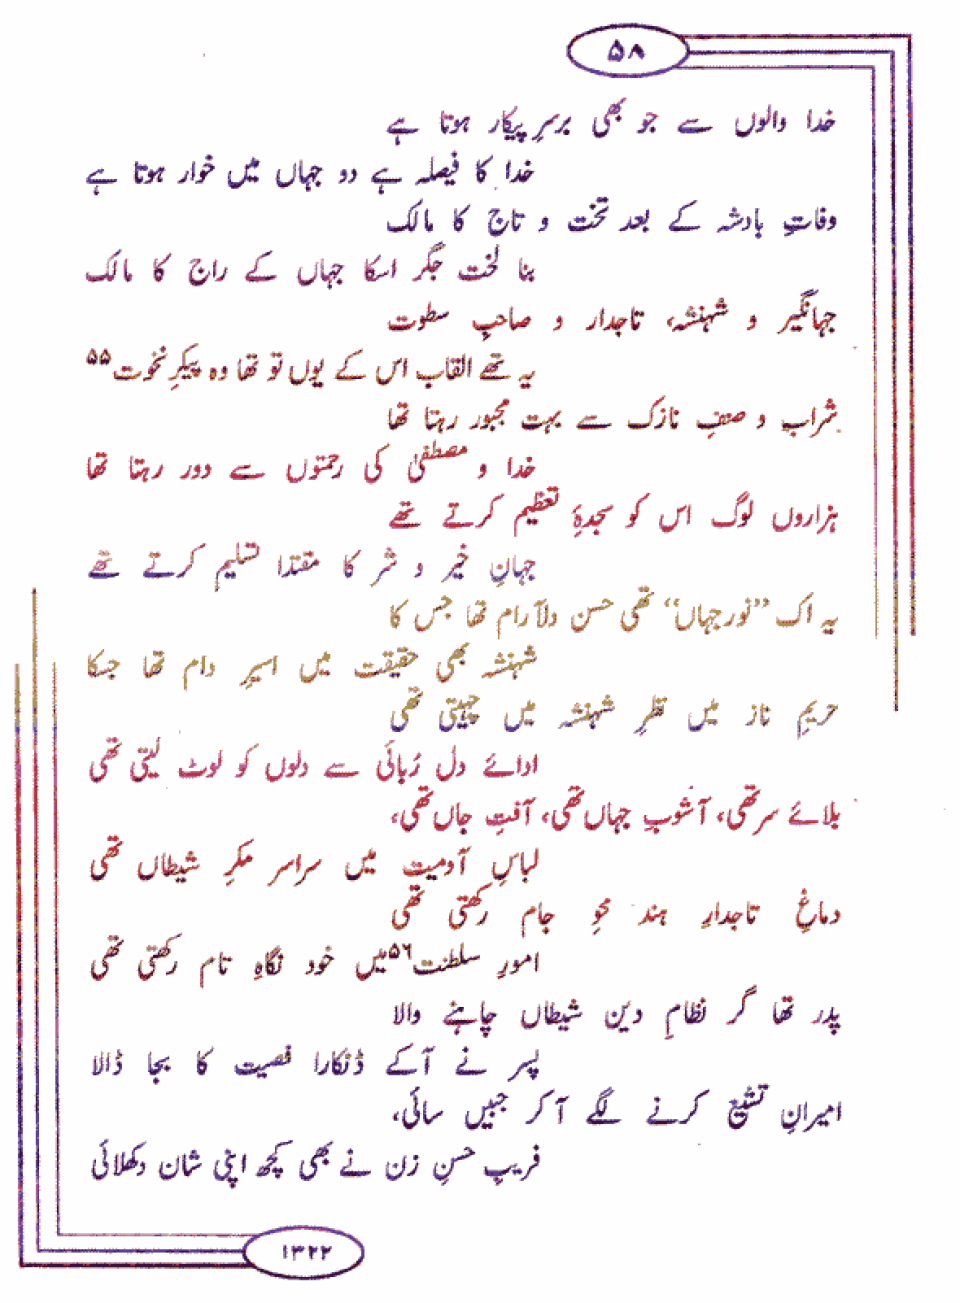 ۵۸
خدا والوں سے جو بھی برسرِ پیکار ہوتا ہے
خدا کا فیصلہ ہے دو جہاں میں خوار ہوتا ہے
وفاتِ بادشہ کے بعد تخت و تاج کا مالک
بنا لخت جگر اسکا جہاں کے راج کا مالک
جہانگیر و شہنشہ، تاجدار و صاحبِ سطوت
یہ تھے القاب اس کے یوں تو تھا وہ پیکرِ نخوت ۵۵
شراب و صنفِ نازک سے بہت مجبور رہتا تھا
خدا و مصطفیٰ کی رحمتوں سے دور رہتا تھا
ہزاروں لوگ اس کو سجدۂ تعظیم کرتے تھے
جہانِ خیر و شر کا مقتدا تسلیم کرتے تھے
یہ اک ”نور جہاں“ تھی حسن دلآرام تھا جس کا
شہنشہ بھی حقیقت میں اسیرِ دام تھا جسکا
حریمِ ناز میں نظرِ شہنشہ میں چہیتی تھی
ادائے دل رُبائی سے دلوں کو لوٹ لیتی تھی
بلائے سر تھی، آشوبِ جہاں تھی، آفتِ جاں تھی،
لباسِ آدمیت میں سراسر مکرِ شیطاں تھی
دماغِ تاجدارِ ہند محوِ جام رکھتی تھی
امورِ سلطنت ۵۶ میں خود نگاہِ تام رکھتی تھی
پدر تھا گر نظامِ دین شیطاں چاہنے والا
پسر نے آکے ڈنکارا فصیت کا بجا ڈالا
امیرانِ تشیع کرنے لگے آ کر جبیں سائی،
فریبِ حسنِ زن نے بھی کچھ اپنی شان دکھلائی
۱۳۲۲